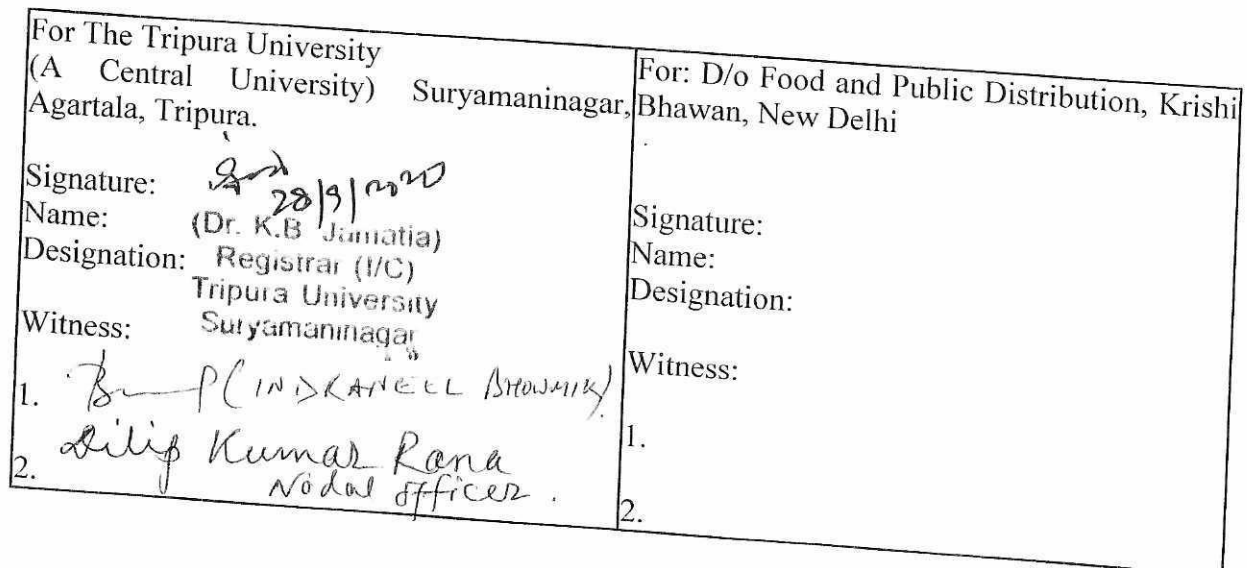 For The Tripura University
(A Central University) Suryamaninagar,
Agartala, Tripura.
Signature:
28/9/2020
Name: (Dr. K.B Jamatia)
Designation: Registrar (I/C)
Tripura University
Suryamaninagar
Witness:
1. (INDRANEEL BHOWMIK)
2. Dilip Kumar Rana
Nodal officer.
For: D/o Food and Public Distribution, Krishi
Bhawan, New Delhi
Signature:
Name:
Designation:
Witness:
1.
2.